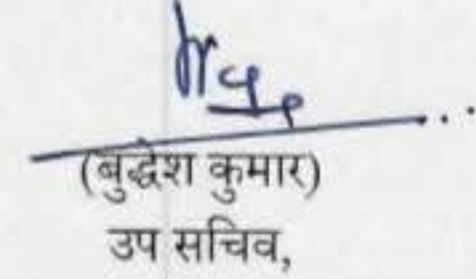 (बुद्धेश कुमार)
उप सचिव,